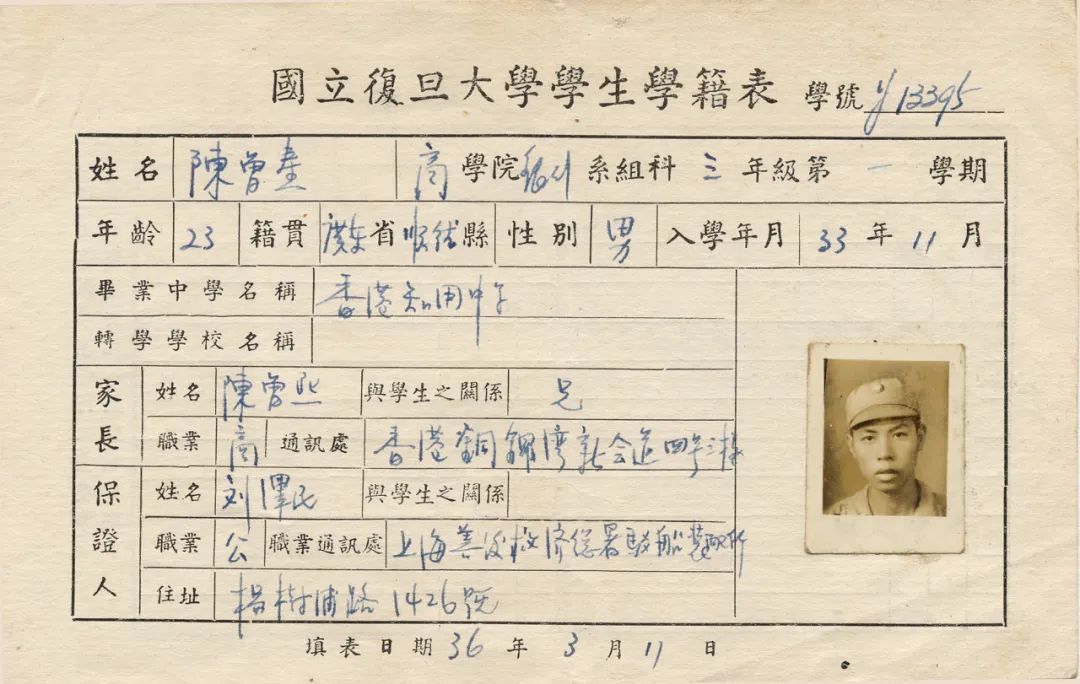 國立復旦大學學生學籍表 學號 y13395
姓名 陳曾燾 商 學院 銀行 系組科 三 年級第 一 學期
年齡 23 籍貫 廣东 省 順德 縣 性別 男 入學年月 33 年 11 月
畢業中學名稱 香港知用中学
轉學學校名稱
家長 姓名 陳曾熙 與學生之關係 兄
職業 商 通訊處 香港銅鑼灣新会道四号三楼
保證人 姓名 刘澤民 與學生之關係
職業 公 職業通訊處 上海善後救济总署駁船裝配所
住址 楊树浦路1426號
填表日期 36 年 3 月 11 日